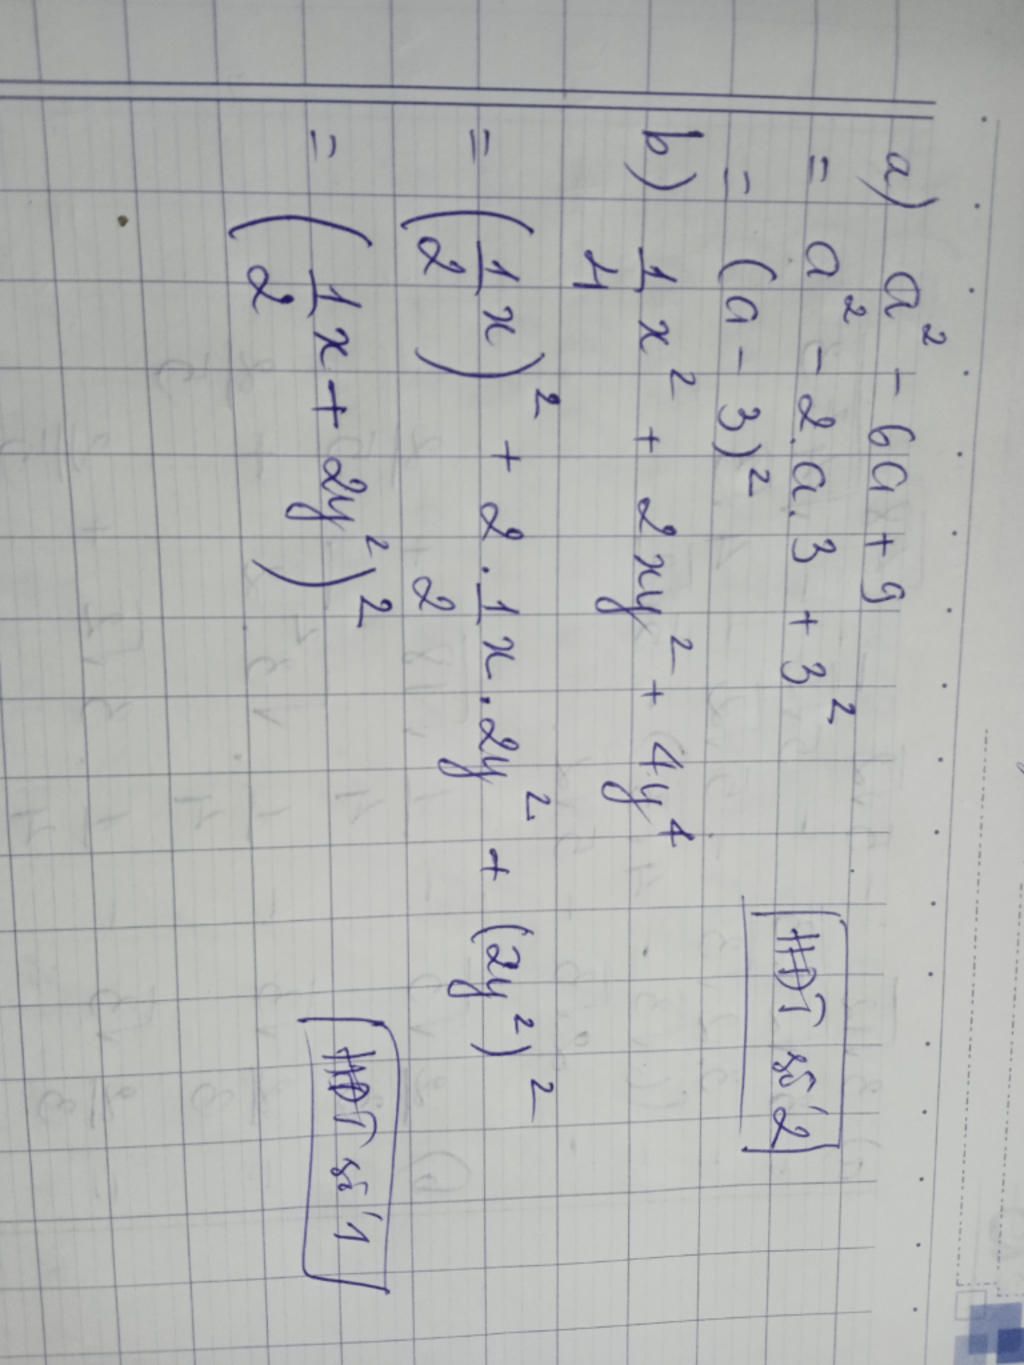 a) a² - 6a + 9
= a² - 2.a.3 + 3²
= (a - 3)²
HĐT số 2
b) 1/4 x² + 2xy² + 4y⁴
= (1/2 x)² + 2 . 1/2 x . 2y² + (2y²)²
= (1/2 x + 2y²)²
HĐT số 1